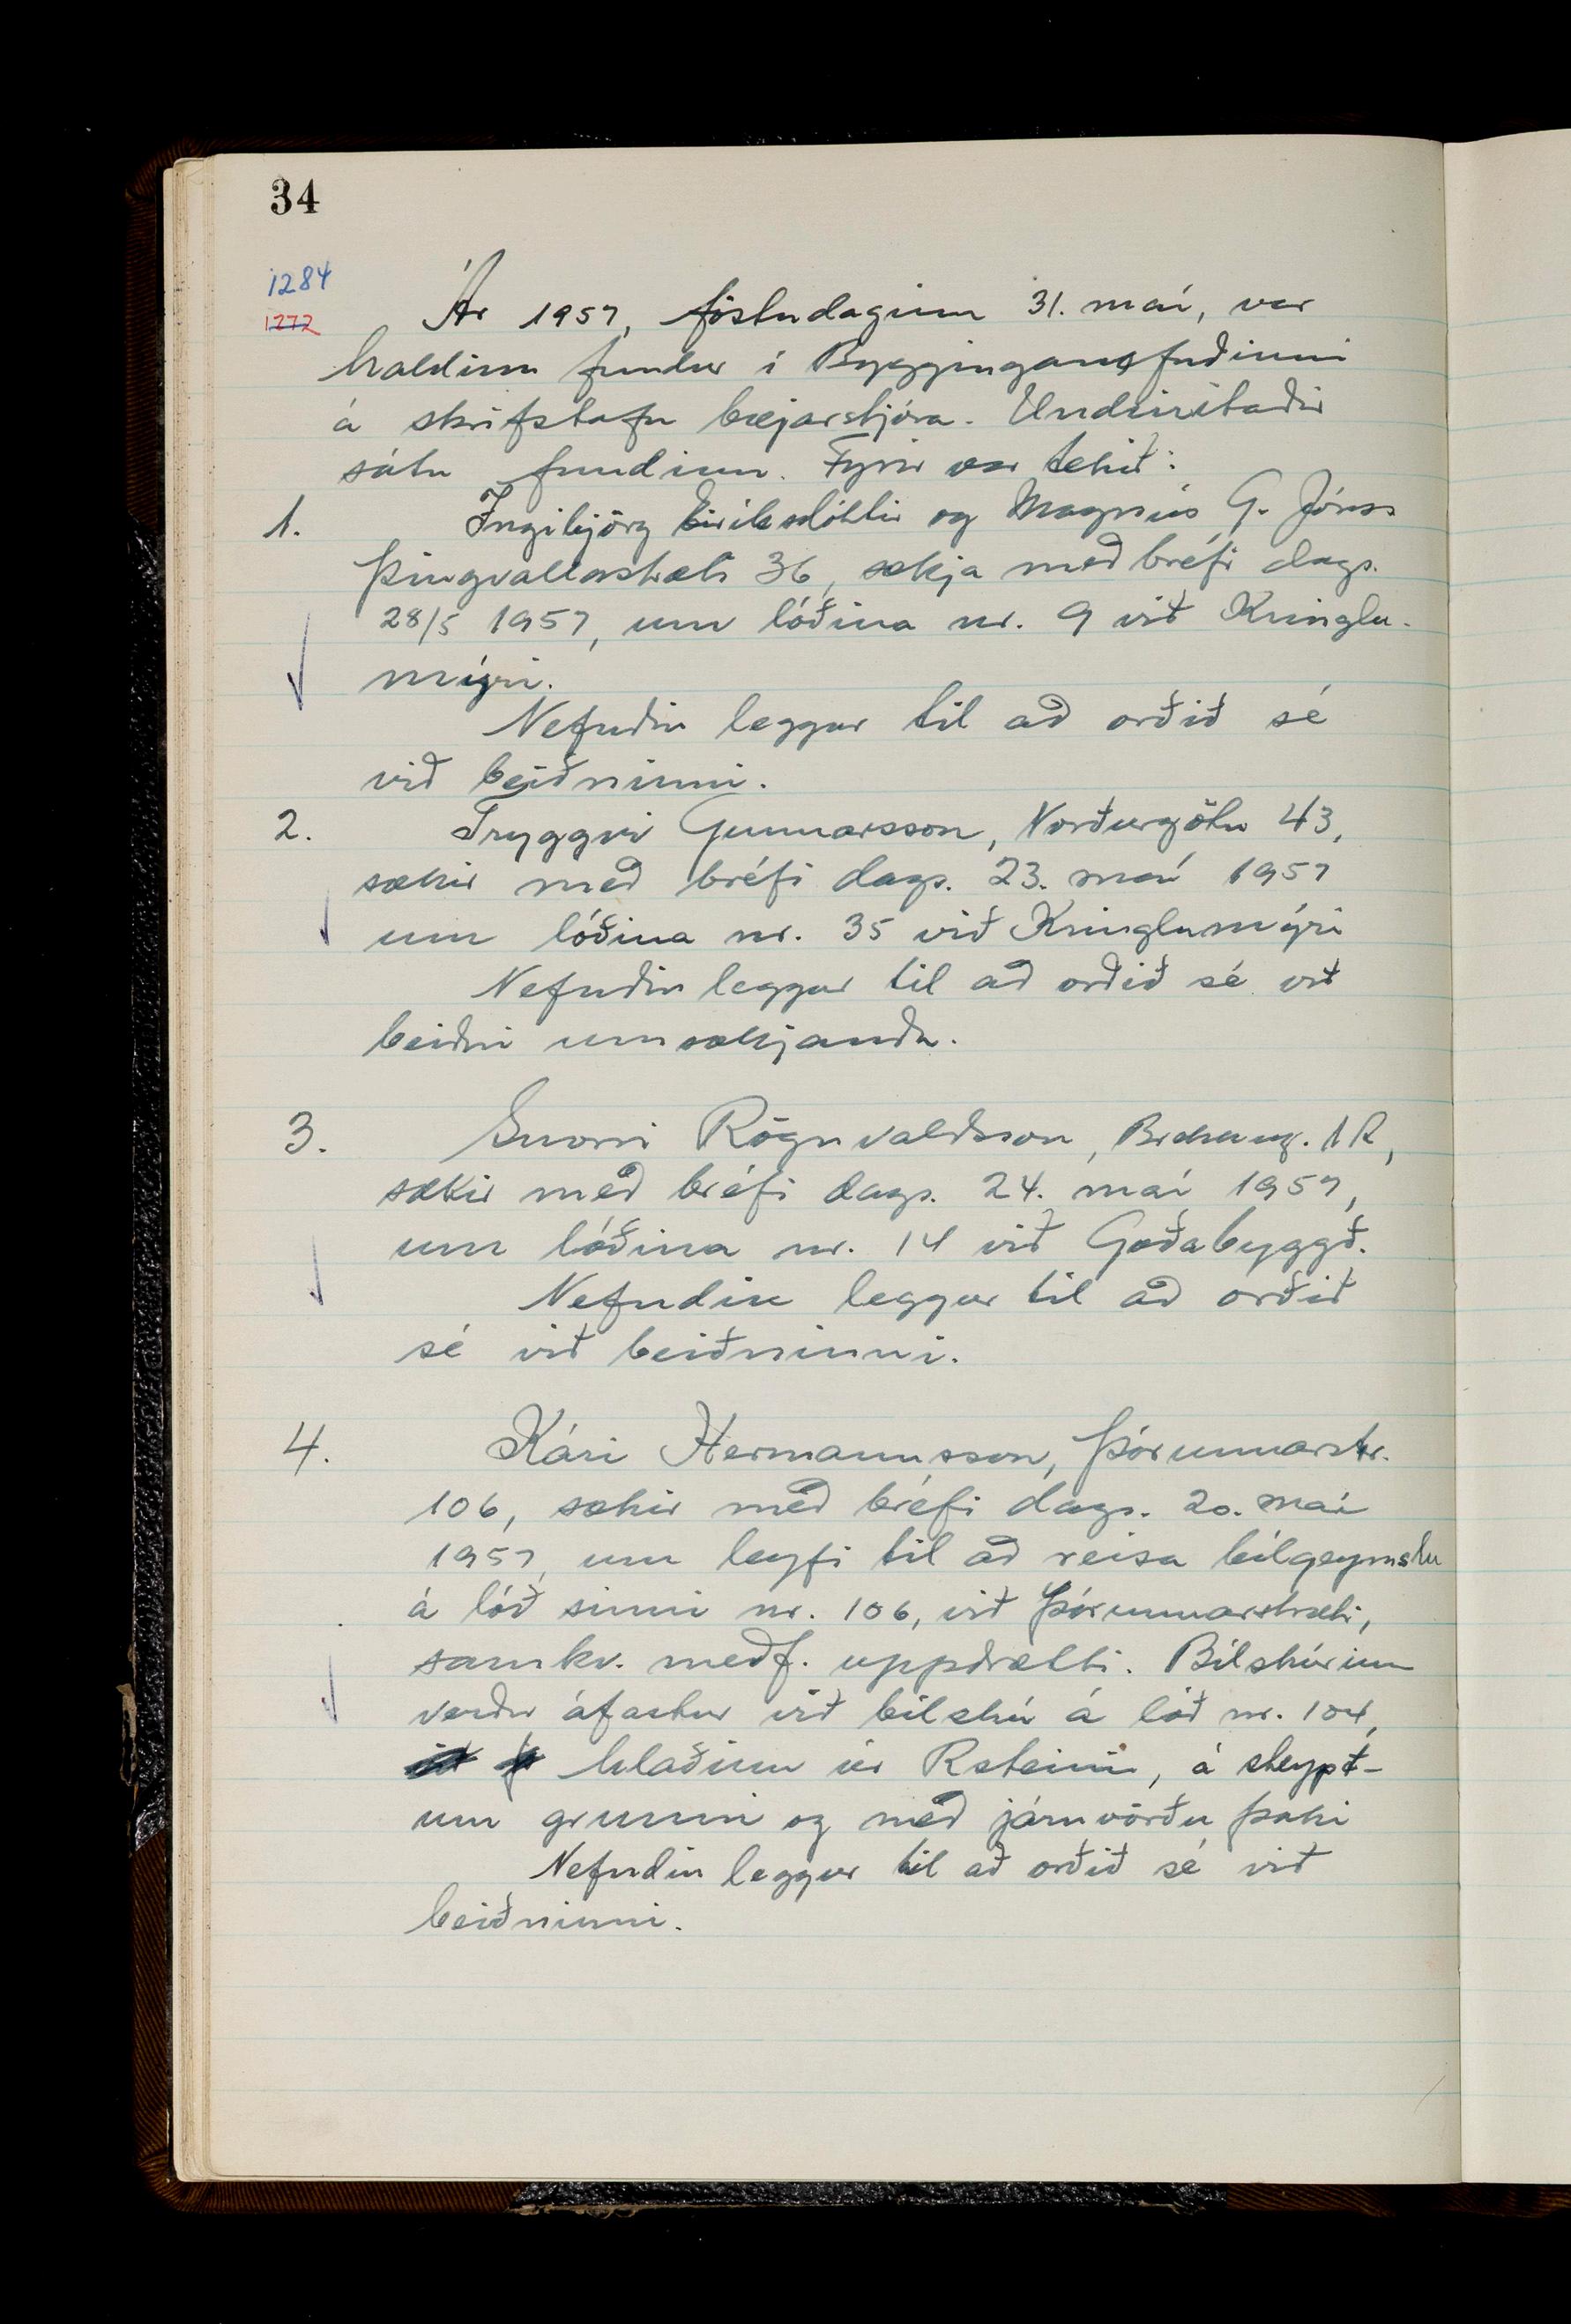 34
1284
1272
Ár 1957, föstudaginn 31. maí, var
haldinn fundur í Bygginganefndinni
á skrifstofu bæjarstjóra. Undirritaðir
sátu fundinn. Fyrir var tekið:
1. Ingibjörg Eiríksdóttir og Magnús G. Jónss
Þingvallastræti 36, sækja með bréfi dags.
28/5 1957, um lóðina nr. 9 við Kringlu-
mýri.
Nefndin leggur til að orðið sé
við beiðninni.
2. Tryggvi Gunnarsson, Norðurgötu 43,
sækir með bréfi dags. 23. maí 1957
um lóðina nr. 35 við Kringlumýri
Nefndin leggur til að orðið sé við
beiðni umsækjanda.
3. Snorri Rögnvaldsson, 1R,
sækir með bréfi dags. 24. maí 1957,
um lóðina nr. 14 við Goðabyggð.
Nefndin leggur til að orðið
sé við beiðninni.
4. Kári Hermannsson, Þórunnarstr.
106, sækir með bréfi dags. 20. maí
1957, um leyfi til að reisa bílgeymslu
á lóð sinni nr. 106, við Þórunnarstræti,
samkv. meðf. uppdrætti. Bílskúrinn
verður áfastur við bílskúr á lóð nr. 104,
hlaðinn úr Rsteini, á steypt-
um grunni og með járnvörðu þaki
Nefndin leggur til að orðið sé við
beiðninni.